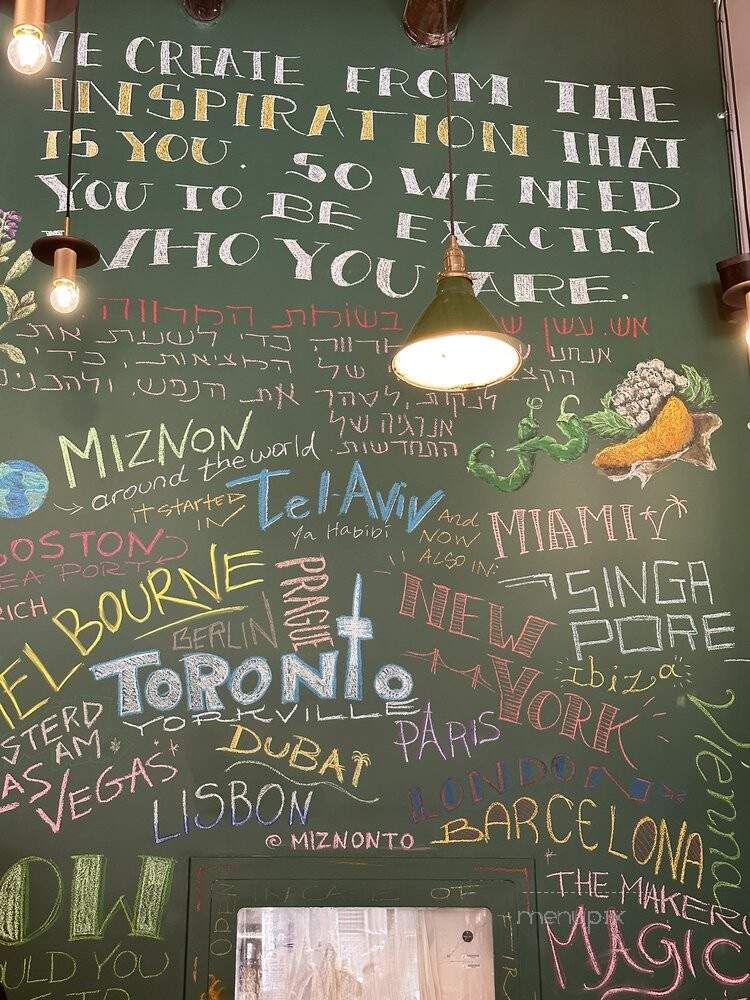 WE CREATE FROM THE
INSPIRATION THAT
IS YOU. SO WE NEED
YOU TO BE EXACTLY
WHO YOU ARE.
אש. עשן בשורת המרווה.
אנחנו כדי לשנות את
של המציאות, כדי
לנקות, לטהר את הנפש, ולהכניס
אנרגיה של
התחדשות.
MIZNON
around the world
it STARTED
IN
Tel-Aviv
Ya Habibi
And
NOW
ALSO IN:
MIAMI
BOSTON
SEA PORT
RICH
MELBOURNE
BERLIN
PRAGUE
TORONTO
YORKVILLE
NEW
YORK
SINGA
PORE
ibiza
STERD
AM
LAS
VEGAS
DUBAI
PARIS
LISBON
LONDON
BARCELONA
Vienna
@ MIZNONTO
THE MAKER
MAGIC
OW
OULD YOU
OPEN IN CASE OF
menupix